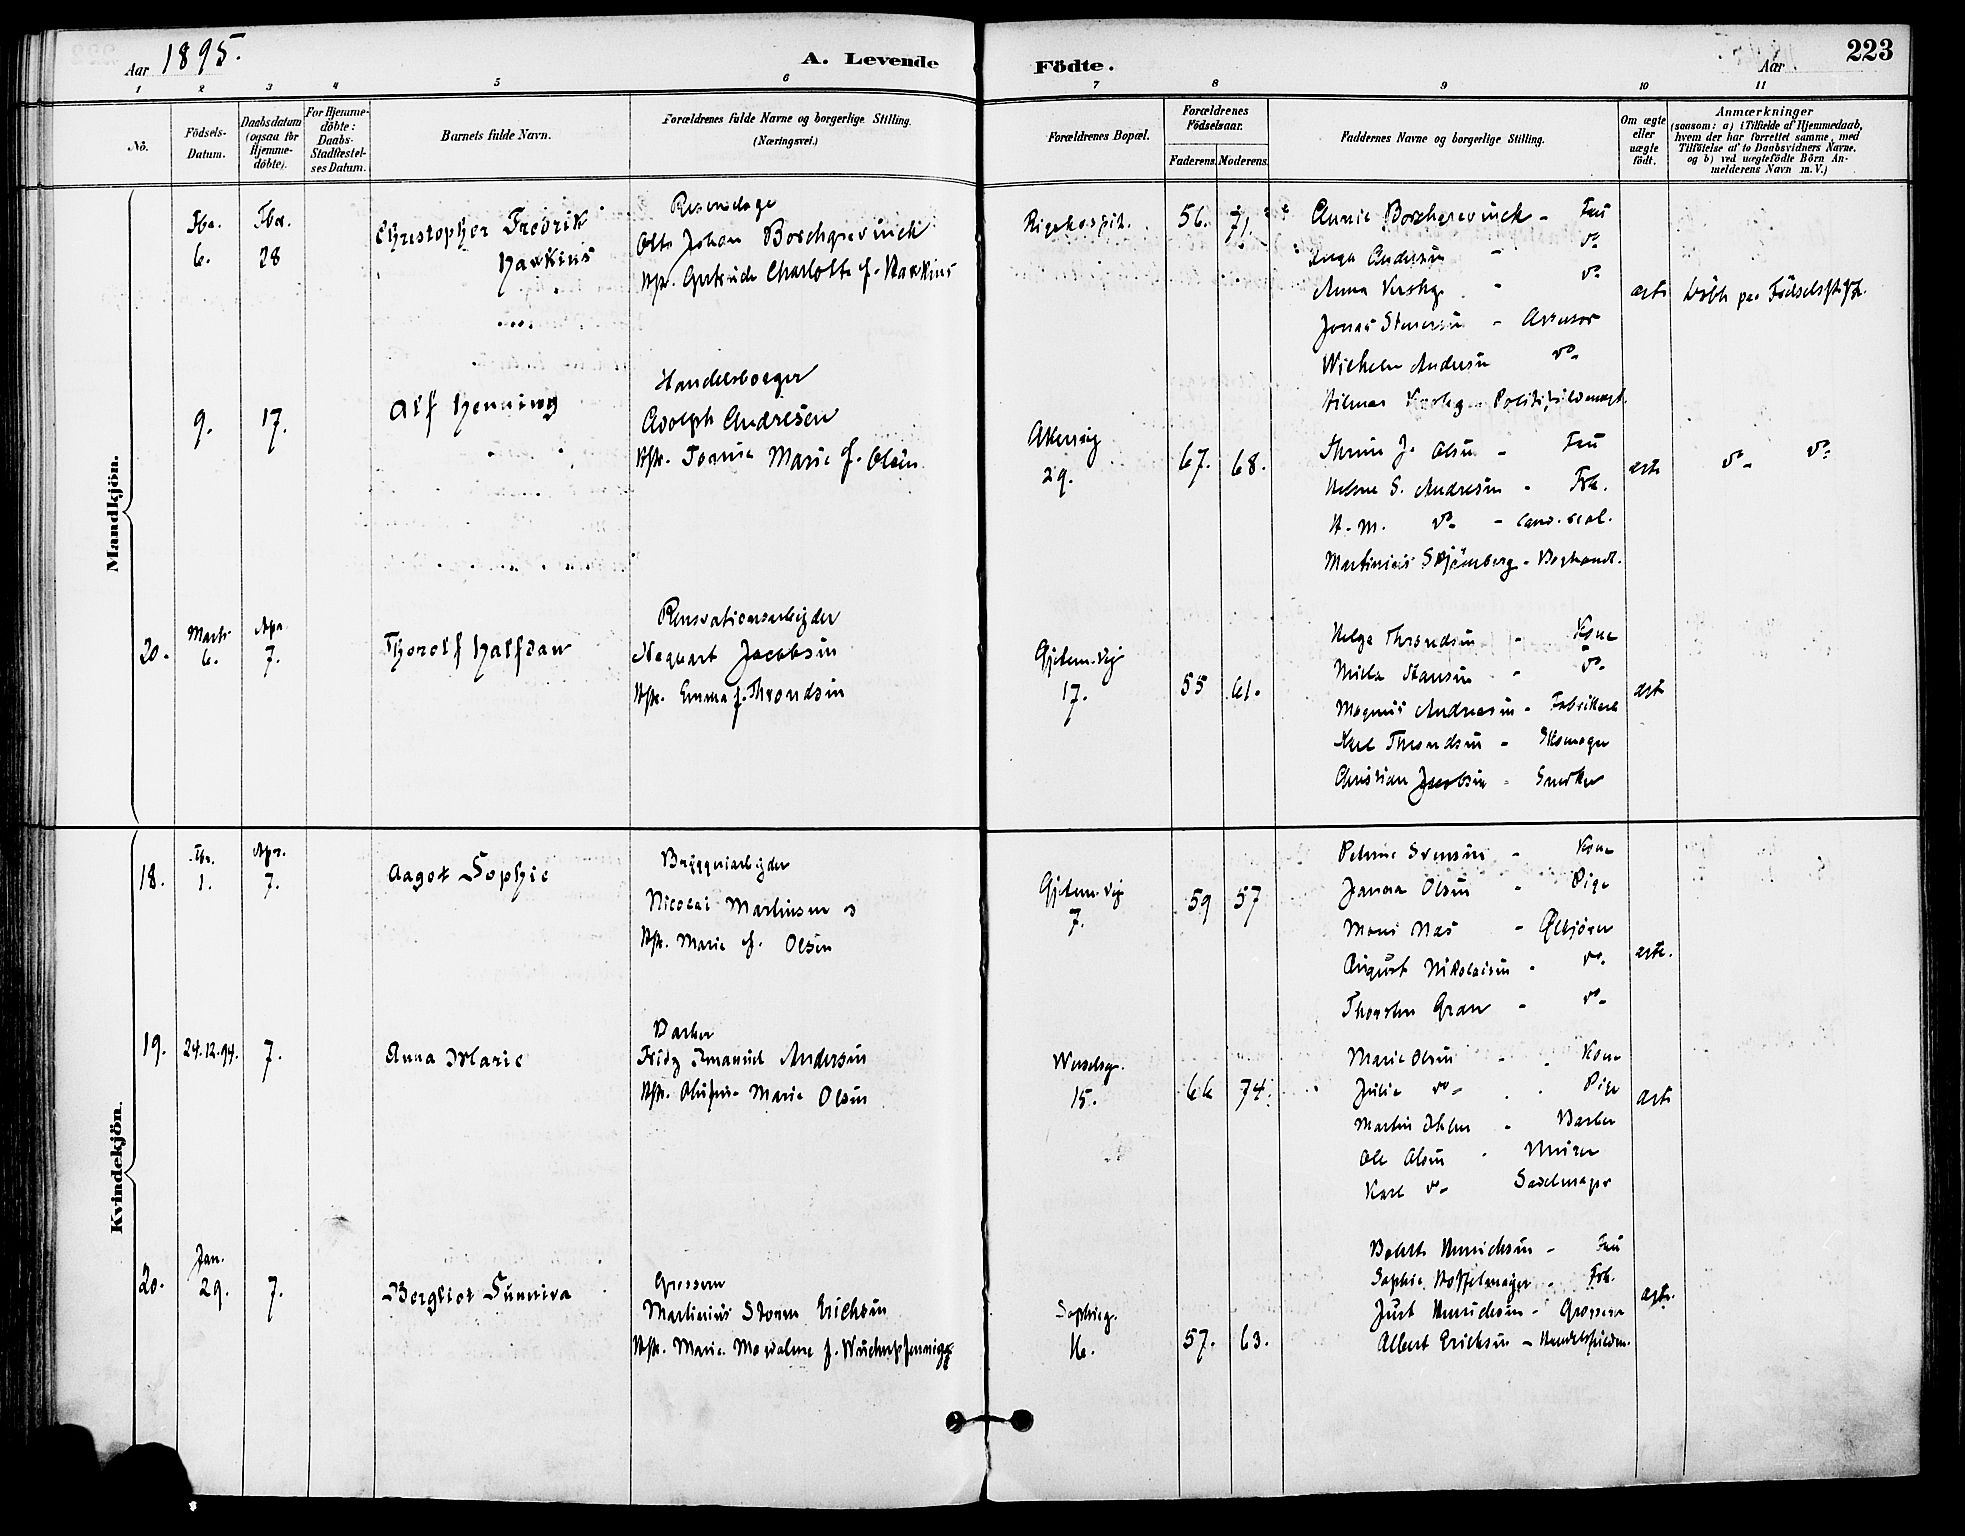 Aar 1895.
A. Levende Födte.
Aar
223
1 2 3 4 5 6 7 8 9 10 11
Nô.
Födsels-Datum.
Daabsdatum (ogsaa for Hjemme-döbte).
For Hjemme-döbte: Daabs-Stadfæstel-ses Datum.
Barnets fulde Navn.
Forældrenes fulde Navne og borgerlige Stilling. (Næringsvei.)
Forældrenes Bopæl.
Forældrenes Födselsaar.
Faderens. Moderens.
Faddernes Navne og borgerlige Stilling.
Om ægte eller uægte födt.
Anmærkninger
(saasom: a) i Tilfælde af Hjemmedaab, hvem der har forrettet samme, med Tilföielse af to Daabsvidners Navne, og b) ved uægtefödte Börn An-melderens Navn m. V.)
Mandkjön.
Fbr. 6.
Fbr. 28
Christopher Fredrik
Hawkins
Otto Johan Borchgrevinck
Hst. Gertrude Charlotte f. Hawkins
Rigshospit.
56. 71.
Annie Borchgrevinck - Fru
Inga Andersen - do
Anna - do
Jonas Stenersen - Assessor
Wilhelm Andersen do
Hilmar
ægte
Födselsstift.
9. 17.
Alf Henning
Handelsborger
Adolph Andresen
Hst. Marie f. Olsen
Akersvig
29.
67. 68.
J. Olsen - Fru
Helene S. Andresen - Frk.
H. M. do - cand. real.
Martinius Stjernberg - Boghandl.
ægte
do do
20.
Marts 6.
Apr. 7.
Thorolf Halfdan
Renovationsarbejder
Jacobsen
Hst. Emma f. Throndsen
Gjetem.vej
17.
55 61.
Helga Throndsen - Kone
Hansen - do
Magnus Andresen - Fabrikarb
Karl Throndsen - Skomager
Christian Jacobsen - Snedker
ægte
Kvindekjön.
18.
Fbr. 1.
Apr. 7.
Aagot Sophie
Bryggeriarbejder
Nicolai Martinsen
Hst. Marie f. Olsen
Gjetem.vej
7.
59 57
Petrine Svensen - Kone
Janna Olsen - Pige
Moris Næs - Ölkjörer
August Nikolaisen - do
Thorsten Gran - do
ægte.
19. 24.12.94. 7.
Anna Marie
Barber
Emanuel Andersen
Hst. Olufine Marie Olsen
Wesselsg.
15.
66 74.
Marie Olsen - Kone
Julie do - Pige
Martin - Barber
Ole Olsen - Murer
Karl do Sadelmager
ægte
20.
Jan. 29.
7.
Bergliot Sunniva
Grosserer
Martinius Storm Erichsen
Hst. Marie Magdalene f. Wucherpfennigg
Sophieg.
16.
57. 63.
Henrichsen - Fru
Sophie Stoffelmeyer - Frk.
Just Henrichsen - Grosserer
Albert Erichsen - Handelsfuldm.
ægte.